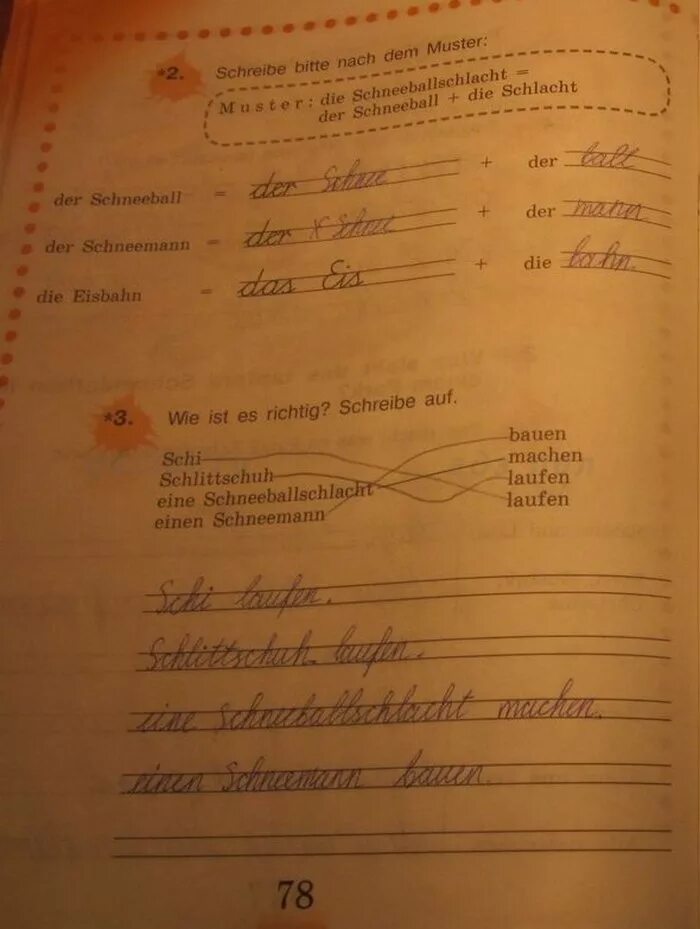 *2. Schreibe bitte nach dem Muster:
Muster: die Schneeballschlacht =
der Schneeball + die Schlacht
der Schneeball = der Schnee + der ball
der Schneemann = der Schnee + der mann
die Eisbahn = das Eis + die bahn.
*3. Wie ist es richtig? Schreibe auf.
Schi bauen
Schlittschuh machen
eine Schneeballschlacht laufen
einen Schneemann laufen
Schi laufen.
Schlittschuh laufen.
eine Schneeballschlacht machen.
einen Schneemann bauen.
78